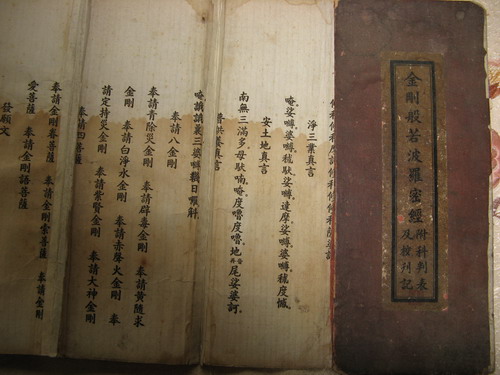 金剛般若波羅密經
附科判表
及挍刊記
淨三業真言
唵。娑嚩。婆嚩。秫馱娑嚩。達摩娑嚩。婆嚩。秫度憾。
安土地真言
南無三滿多。母馱喃。唵。度嚕度嚕。地尾。娑婆訶。
普供養真言
唵誐誐曩三婆嚩韈日囉斛。
奉請八金剛
奉請青除災金剛 奉請辟毒金剛 奉請黃隨求
金剛 奉請白淨水金剛 奉請赤聲火金剛 奉
請定持災金剛 奉請紫賢金剛 奉請大神金剛
奉請四菩薩
奉請金剛眷菩薩 奉請金剛索菩薩 奉請金剛
愛菩薩 奉請金剛語菩薩
發願文